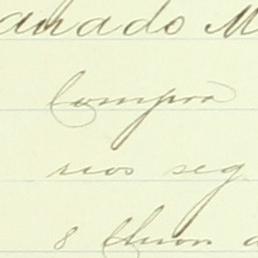 anado M
Compra
rios seg
8